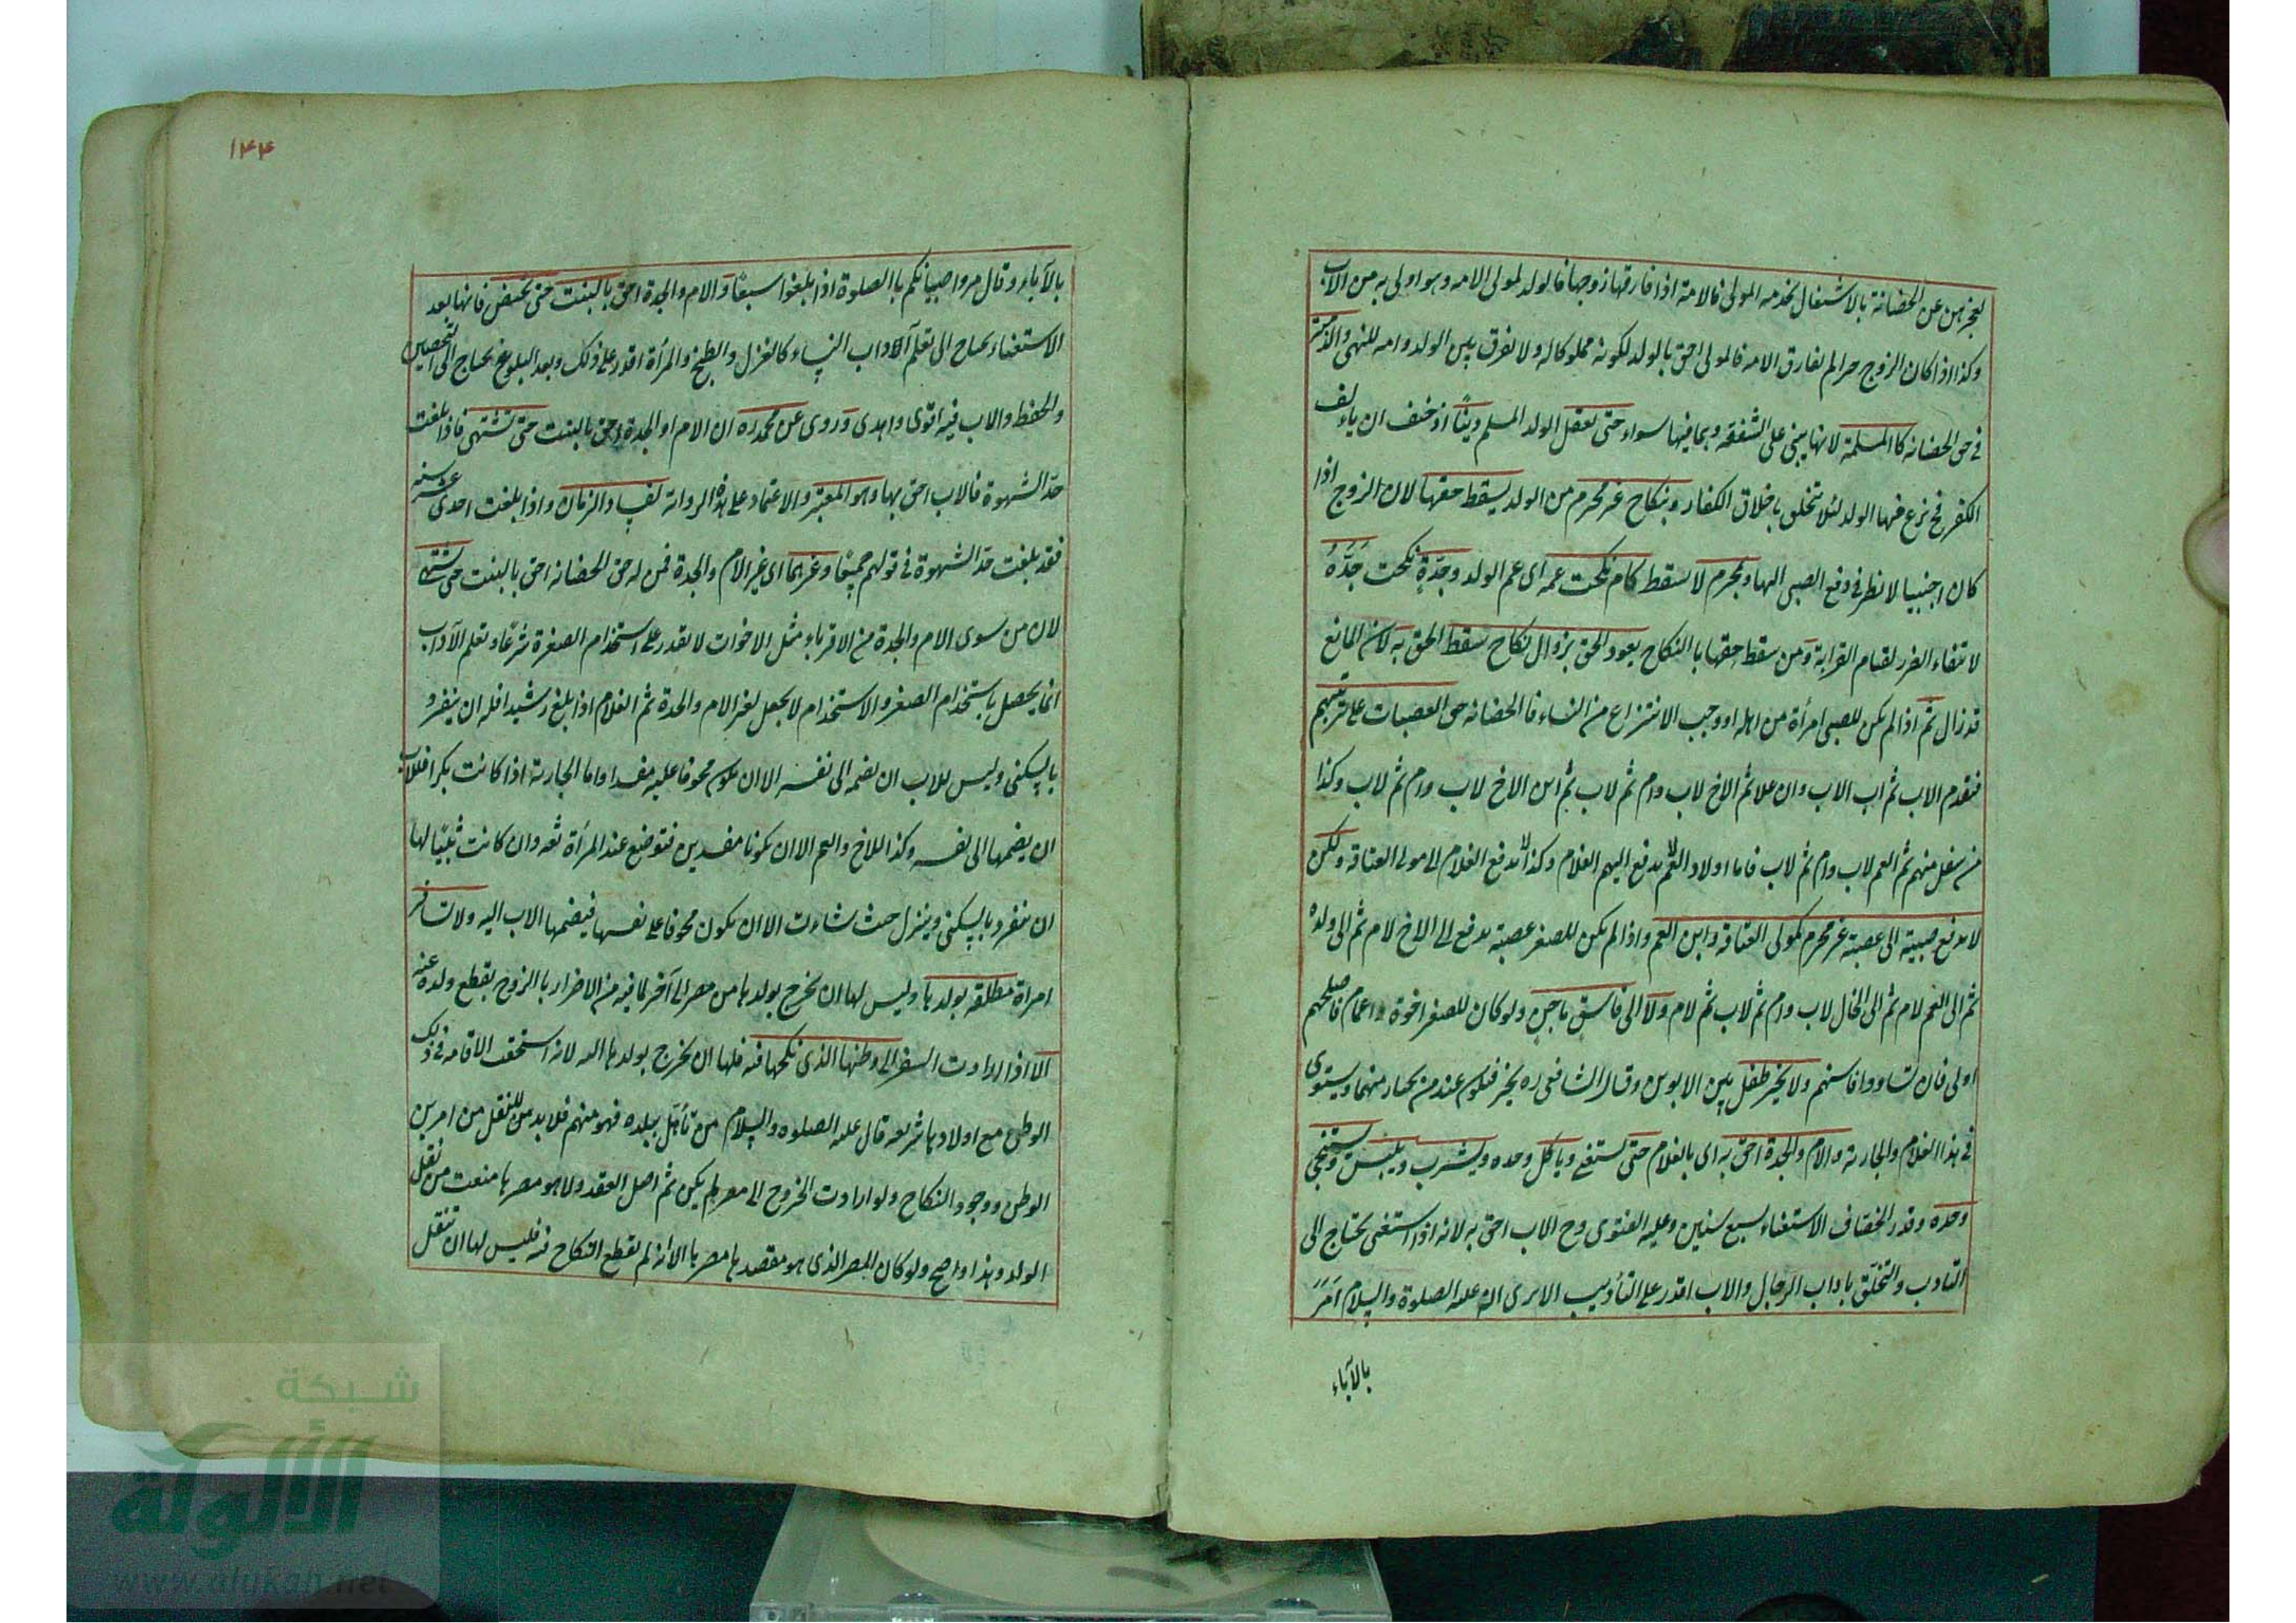 لعجزهن عن الحضانة بالاشتغال بخدمه المولى فالامة اذا فارقها زوجها فالولد لمولى الامه وهو اولى به من الاب
وكذا اذا كان الزوج حرا لم يفارق الامه فالمولى احق بالولد لكونه مملوكا له ولا يفرق بين الولد وامه للنهى والذمية
فى حق الحضانه كالمسلمة لانها يبنى على الشفقه وهما فيها سواء حتى يعقل الولد المسلم دينًا او خيف ان يألف
الكفر فح نزع منها الولد لئلا يتخلق باخلاق الكفار وبنكاح غير محرم من الولد يسقط حقها لان الزوج اذا
كان اجنبيا لا نظر فى دفع الصبى اليها وبمحرم لا يسقط كام نكحت عمه اى عم الولد وجدّةٍ نكحت جَدَّهُ
لانتفاء الضرر لقيام القرابة ومن سقط حقها بالنكاح يعود الحق بزوال نكاح سقط الحق به لان المانع
قد زال ثم اذا لم يكن للصبى امرأة من اهله او وجب الانتزاع من النساء فالحضانه حق العصبات على ترتيبهم
فتقدم الاب ثم اب الاب وان علا ثم الاخ لاب وام ثم لاب ثم ابن الاخ لاب وام ثم لاب وكذا
من سفل منهم ثم العم لاب وام ثم لاب فاما اولاد العم لا يدفع اليهم الغلام وكذا لا يدفع الغلام الى مولى العتاقة ولكن
لا يدفع صبية الى عصبة غير محرم كمولى العتاقه وابن العم واذا لم يكن للصغير عصبة يدفع الى الاخ لام ثم الى ولده
ثم الى العم لام ثم الى الخال لاب وام ثم لاب ثم لام ولا الى فاسق ماجن ولو كان للصغير اخوة واعمام فاصلحهم
اولى فان تساووا فاسنهم ولا يخير طفل بين الابوين وقال الشافعى ره يخير فيكون عند من يختار منهما ويستوى
فى هذا الغلام والجاريه والام والجدة احق به اى بالغلام حتى يستغنى وياكل وحده ويشرب ويلبس ويستنجى
وحده وقدر الخصاف الاستغناء بسبع سنين وعليه الفتوى وح الاب احق به لانه اذا استغنى يحتاج الى
التادب والتخلق باداب الرجال والاب اقدر على التأديب الا يرى انه عليه الصلوة والسلام امَرَ
بالآباء
١٤٤
بالآباء وقال مروا صبيانكم باالصلوة اذا بلغوا سبعًا والام والجدة احق بالبنت حتى تحيض فانها بعد
الاستغناء يحتاج الى تعلم آلاداب النساء كالغزل والطبخ والمرأة اقدر على ذلك وبعد البلوغ يحتاج الى التحصين
والحفظ والاب فيه اقوى واهدى وروى عن محمد ره ان الام او الجدة احق بالبنت حتى تشتهى فاذا بلغت
حدّ الشهوة فالاب احق بها وهو المعتبر والاعتماد على هذه الرواية لفساد الزمان واذا بلغت احدى عشر سنه
فقد بلغت حدّ الشهوة فى قولهم جميعًا وغيرهما اى غير الام والجدة فمن له حق الحضانه احق بالبنت حتى تشتهى
لان من سوى الام والجدة من الاقرباء مثل الاخوات لا يقدر على استخدام الصغيرة شرعًا وتعلم الآداب
انما يحصل باستخدام الصغير والاستخدام لا يجعل لغير الام والجدة ثم الغلام اذا بلغ رشيدا فله ان ينفرد
بالسكنى وليس للاب ان يضمه الى نفسه الا ان يكون مخوفا عليه مفسدا واما الجارية اذا كانت بكرا فللاب
ان يضمها الى نفسه وكذا للاخ والعم الا ان يكونا مفسدين فتوضع عند المرأة ثقه وان كانت ثيبًا لها
ان ينفرد بالسكنى وينزل حيث شاءت الا ان يكون مخوفا على نفسها فيضمها الاب اليه ولا تسافر
امراة مطلقه بولدها وليس لها ان يخرج بولدها من مصر الى آخر لما فيه من الاضرار باالزوج بقطع ولده عنه
الا اذا ارادت السفر الى وطنها الذى نكحها فيه فلها ان يخرج بولدها اليه لانه استحقت الاقامه فى ذلك
الوطن مع اولادها شريعه قال عليه الصلوه والسلام من تأهل ببلده فهو منهم فلا بد من للنقل من امرين
الوطن ووجود النكاح ولو ارادت الخروج الى مصر لم يكن ثم اصل العقد ولا هو مصرها منعت من نقل
الولد وهذا واضح ولو كان المصر الذى هو مقصدها مصرها الا انه لم يقطع النكاح فيه فليس لها ان تنقل
شبكة
الألوكة
www.alukah.net